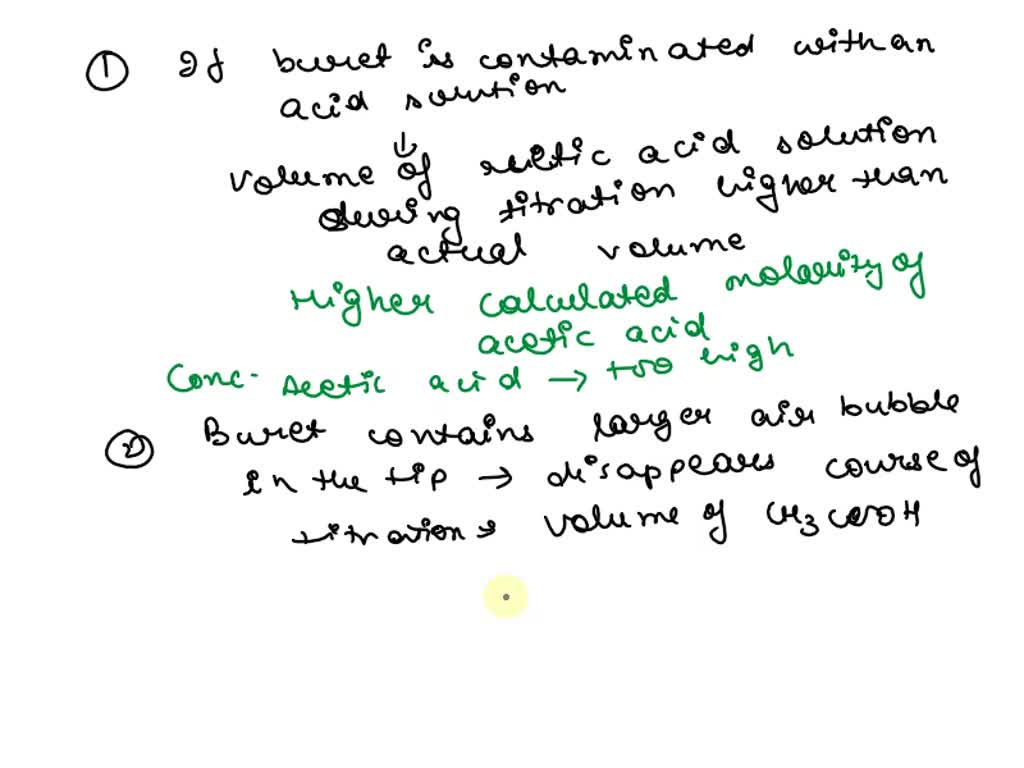 ① If buret is contaminated with an
acid solution
↓
volume of acetic acid solution
during titration higher than
actual volume
Higher calculated molarity of
acetic acid
Conc. Acetic acid → too high
② Buret contains larger air bubble
in the tip → disappears course of
titration volume of CH3COOH